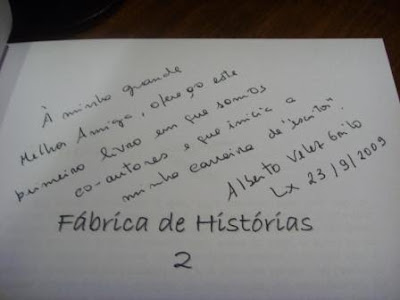 À minha grande
Melhor Amiga, ofereço este
primeiro livro em que somos
co-autores e que inicia a
minha carreira de "escritor".
Alberto Velez Grilo
Lx 23/9/2009
Fábrica de Histórias
2